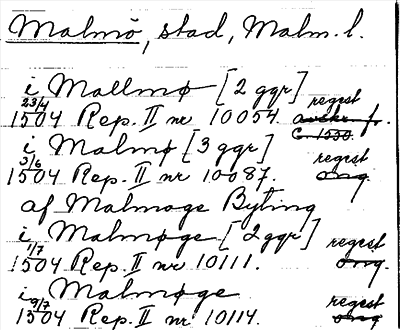 Malmö, stad, Malm. l.
i Mallmø [2 ggr]
23/4 regest
1504 Rep. II nr 10054. avskr. fr.
i Malmø [3 ggr] c. 1550.
3/6 regest
1504 Rep. II nr 10087. orig.
af Malmøge Byting
i Malmøge [2 ggr]
1/7 regest
1504 Rep. II nr 10111. orig.
i Malmøge
9/7 regest
1504 Rep. II nr 10114. orig.